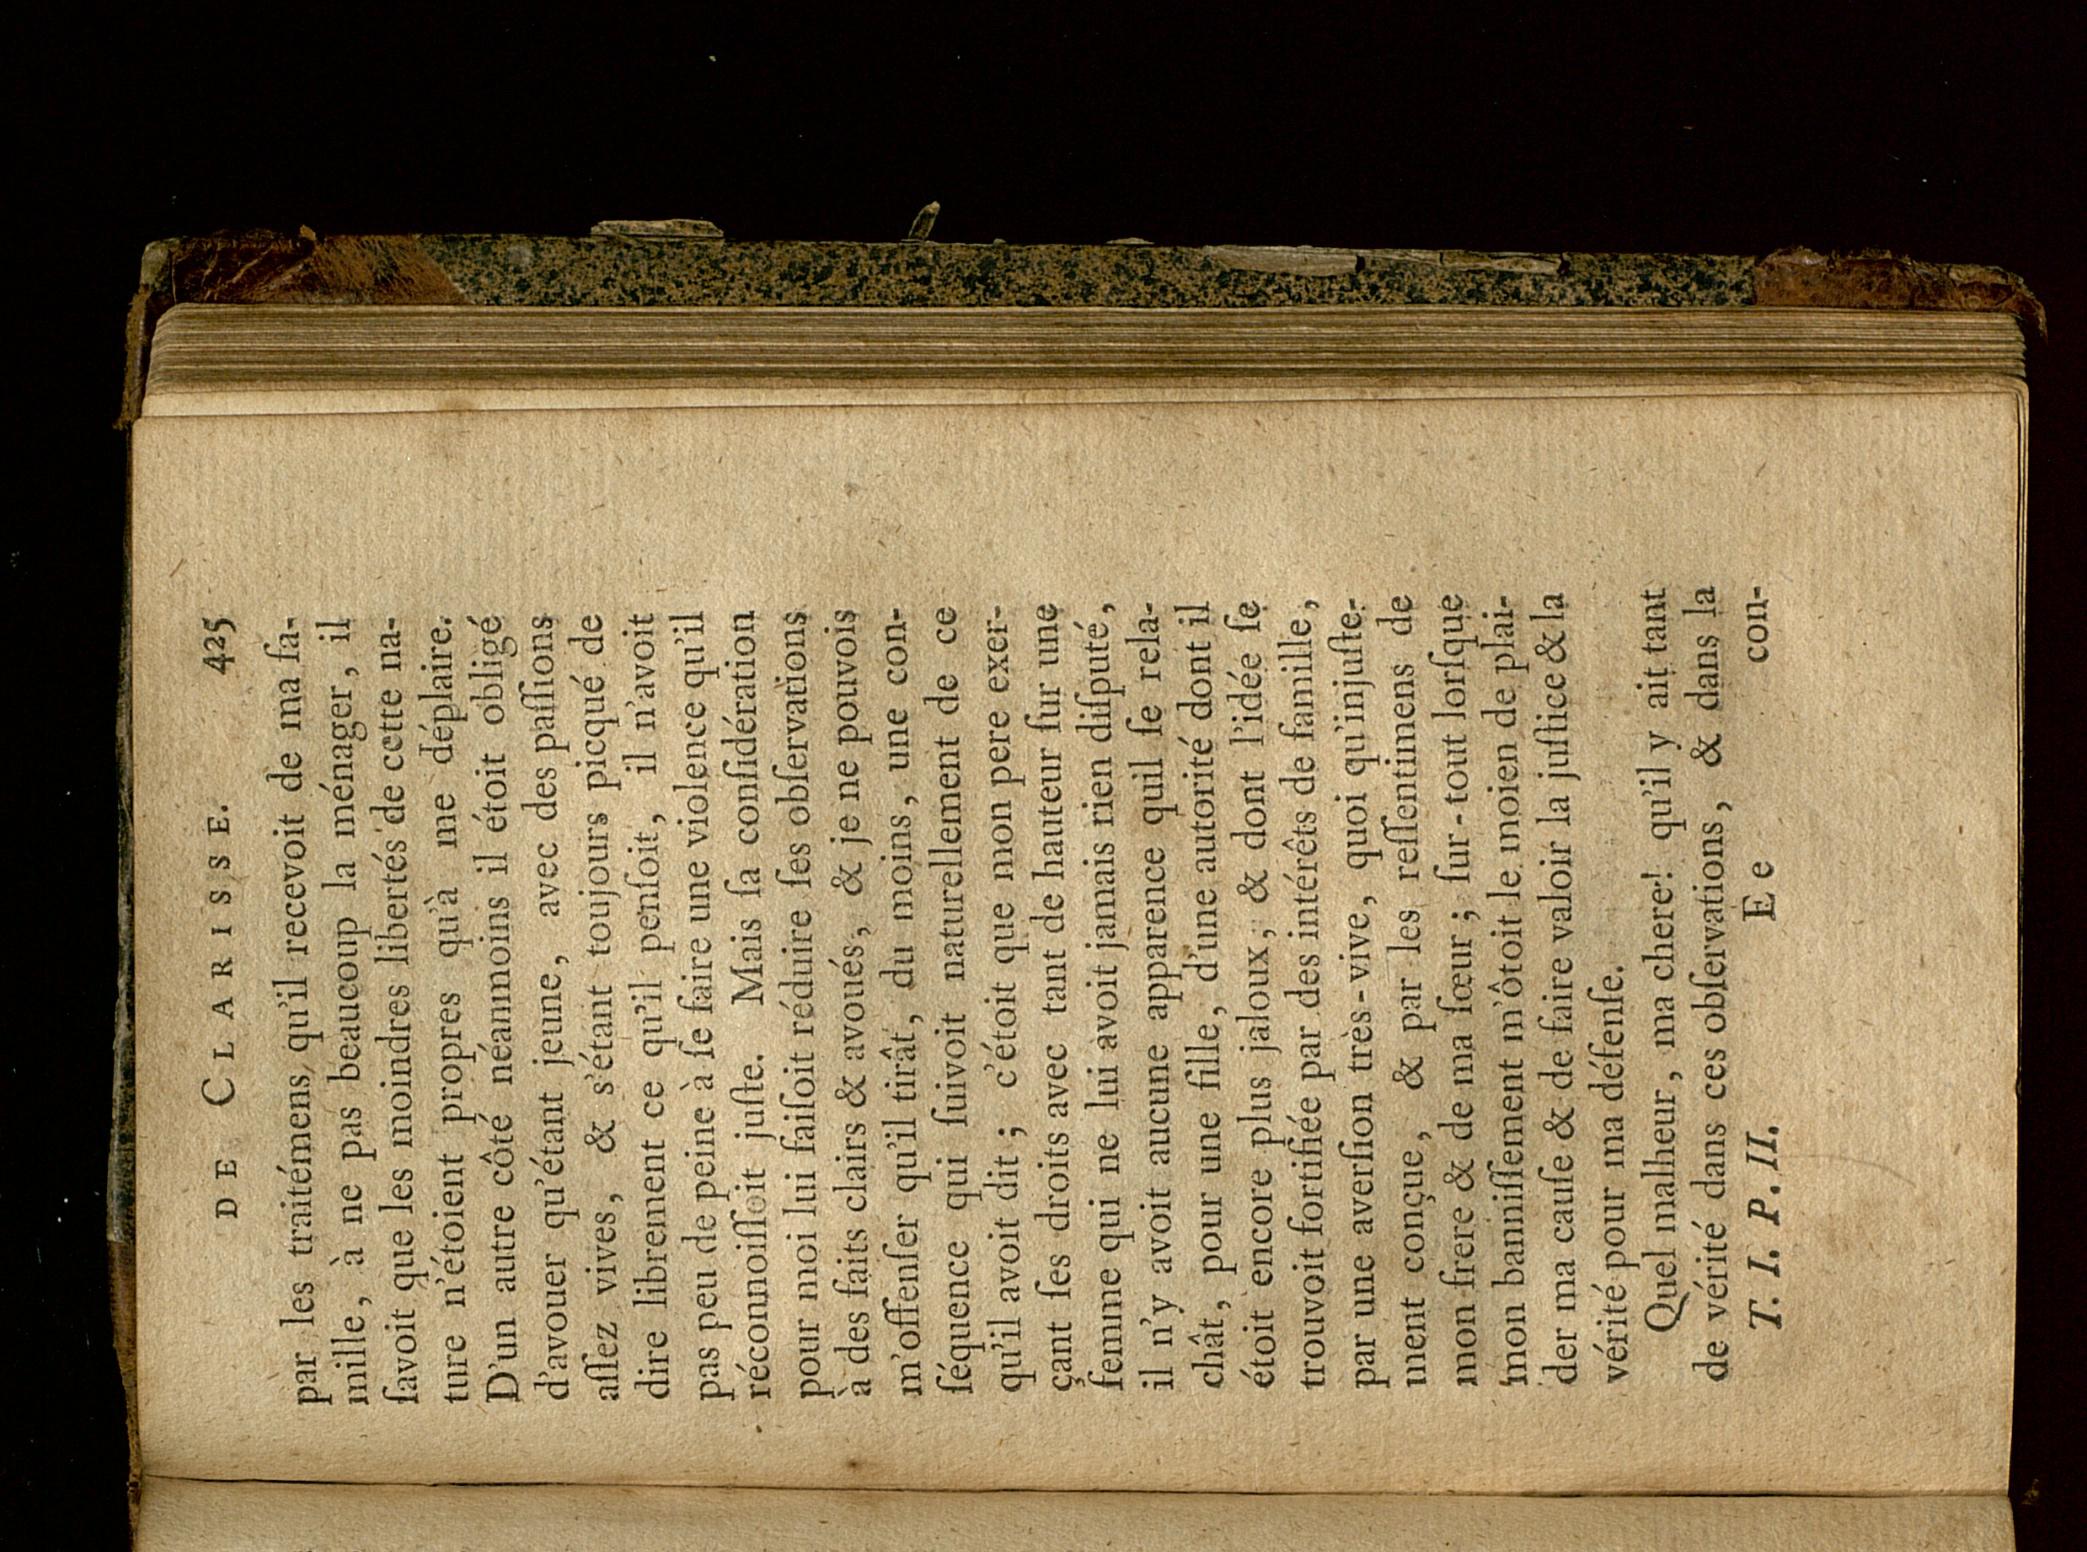 DE CLARISSE. 425
par les traitémens qu'il recevoit de ma fa-
mille, à ne pas beaucoup la ménager, il
ſavoit que les moindres libertés de cette na-
ture n'étoient propres qu'à me déplaire.
D'un autre côté néanmoins il étoit obligé
d'avouer qu'étant jeune, avec des paſſions
aſſez vives, & s'étant toujours picqué de
dire librement ce qu'il penſoit, il n'avoit
pas peu de peine à ſe faire une violence qu'il
réconnoiſſoit juſte. Mais ſa conſidération
pour moi lui faiſoit réduire ſes obſervations
à des faits clairs & avoués, & je ne pouvois
m'offenſer qu'il tirât, du moins, une con-
ſéquence qui ſuivoit naturellement de ce
qu'il avoit dit; c'étoit que mon pere exer-
çant ſes droits avec tant de hauteur ſur une
femme qui ne lui avoit jamais rien diſputé,
il n'y avoit aucune apparence quil ſe rela-
chât, pour une fille, d'une autorité dont il
étoit encore plus jaloux, & dont l'idée ſe
trouvoit fortifiée par des intérêts de famille,
par une averſion très-vive, quoi qu'injuſte-
ment conçue, & par les reſſentimens de
mon frere & de ma ſœur; ſur-tout lorſque
mon banniſſement m'ôtoit le moien de plai-
der ma cauſe & de faire valoir la juſtice & la
vérité pour ma défenſe.
Quel malheur, ma chere! qu'il y ait tant
de vérité dans ces obſervations, & dans la
T. I. P. II. Ee con-